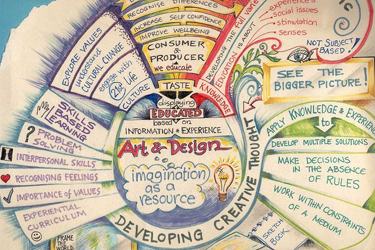 RECOGNISE DIFFERENCES
INCREASE SELF CONFIDENCE
IMPROVE WELLBEING
CONSUMER
& PRODUCER
we educate
TASTE
EXPLORE VALUES
understand
CULTURAL CHANGE
engage with
21st C
Life
CULTURE
DEVELOPING THE FULL
EDUCATION IS ABOUT
KNOWLEDGE
experience
social issues
stimulation
senses
NOT SUBJECT
BASED!
SEE THE
BIGGER PICTURE!
displaying
EDUCATED
based on
INFORMATION & EXPERIENCE
Art & Design
imagination
as a
resource
DEVELOPING CREATIVE THOUGHT
SKILLS
BASED
LEARNING
? PROBLEM
SOLVING
INTERPERSONAL SKILLS
RECOGNISING FEELINGS
IMPORTANCE OF VALUES
EXPERIENTIAL
CURRICULUM
FRAME THE
WORLD
APPLY KNOWLEDGE & EXPERIENCE
to
DEVELOP MULTIPLE SOLUTIONS
MAKE DECISIONS
IN THE ABSENCE
OF RULES
WORK WITHIN CONSTRAINTS
OF A MEDIUM
SKETCH
BOOK